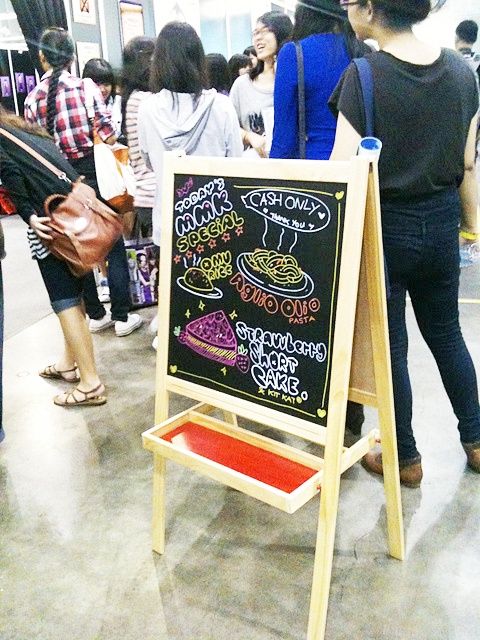 TODAY'S
MMK
SPECIAL
CASH ONLY
THANK YOU
OMU
RICE
Aglio Olio
PASTA
Strawberry
SHORT
CAKE.
& KIT KAT